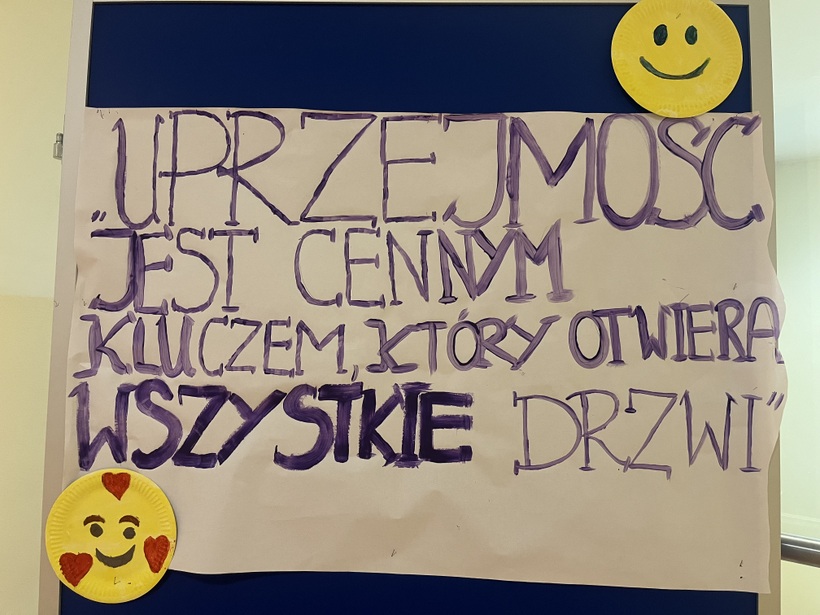 „UPRZEJMOŚĆ
JEST CENNYM
KLUCZEM, KTÓRY OTWIERA
WSZYSTKIE DRZWI”